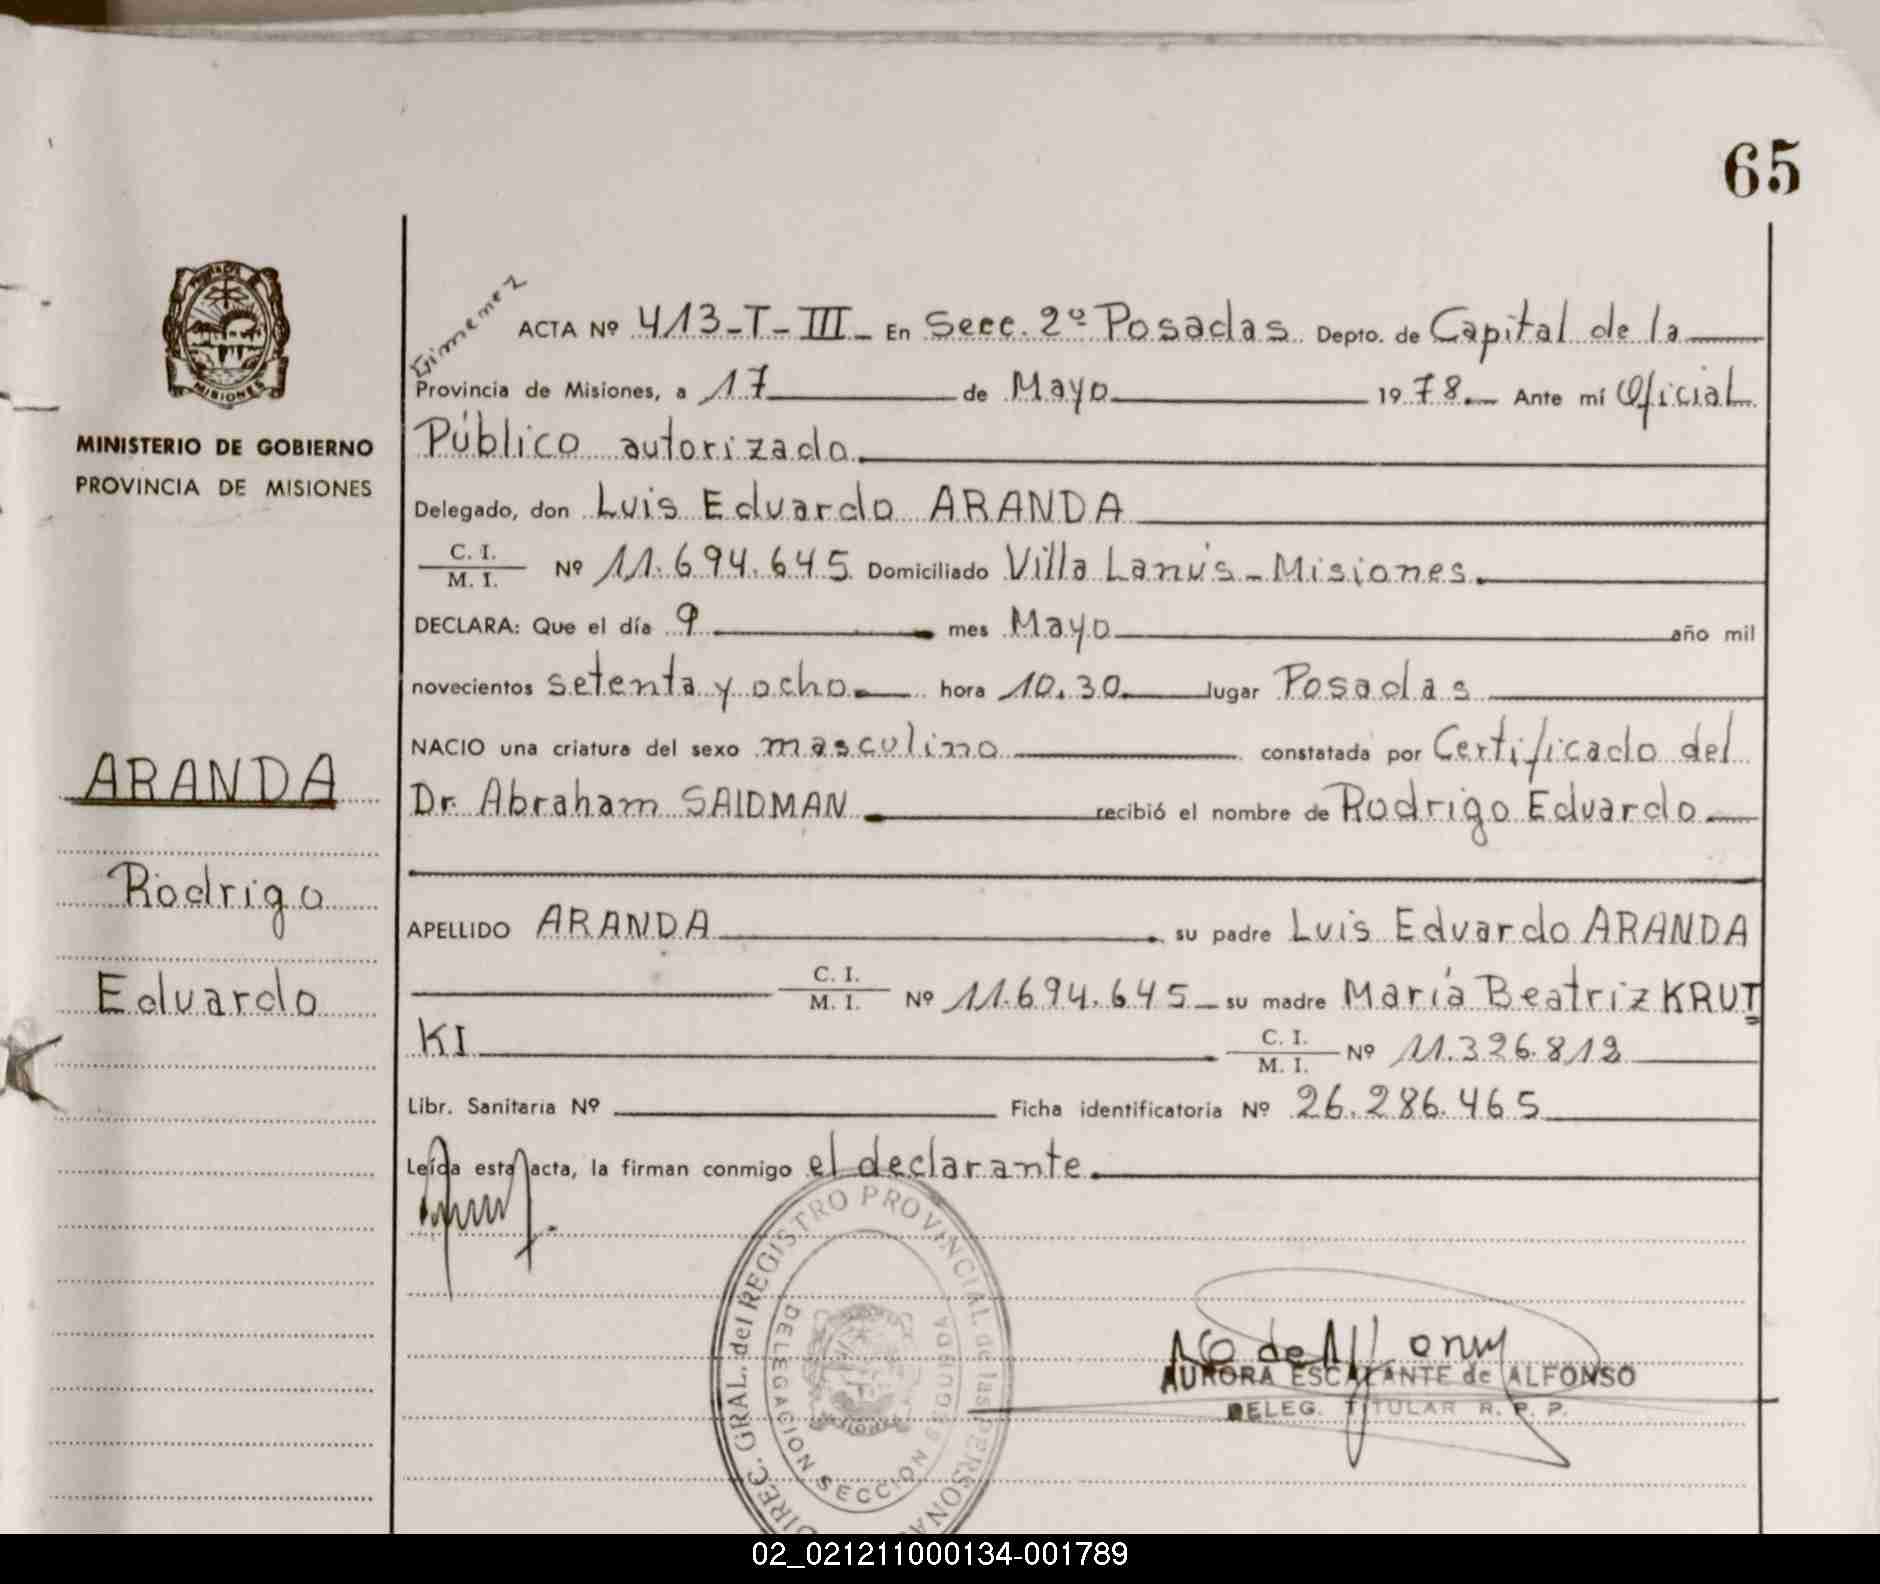 65
MISIONES
MINISTERIO DE GOBIERNO
PROVINCIA DE MISIONES
ARANDA
Rodrigo
Eduardo
Gimenez
ACTA Nº 413-T-III- En Secc. 2º Posadas Depto. de Capital de la
Provincia de Misiones, a 17 de Mayo 1978. Ante mí Oficial
Público autorizado
Delegado, don Luis Eduardo ARANDA
C. I.
M. I. Nº 11.694.645 Domiciliado Villa Lanús - Misiones.
DECLARA: Que el día 9 mes Mayo año mil
novecientos setenta y ocho hora 10.30 lugar Posadas
NACIO una criatura del sexo masculino constatada por Certificado del
Dr. Abraham SAIDMAN recibió el nombre de Rodrigo Eduardo
APELLIDO ARANDA su padre Luis Eduardo ARANDA
C. I.
M. I. Nº 11.694.645 su madre María Beatriz KRUT
KI C. I.
M. I. Nº 11.326.812
Libr. Sanitaria Nº Ficha identificatoria Nº 26.286.465
Leída esta acta, la firman conmigo el declarante.
DIREC. GRAL. del REGISTRO PROVINCIAL de las PERSONAS
DELEGACION SECCION SEGUNDA
AURORA ESCALANTE de ALFONSO
DELEG. TITULAR R. P. P.
02_021211000134-001789